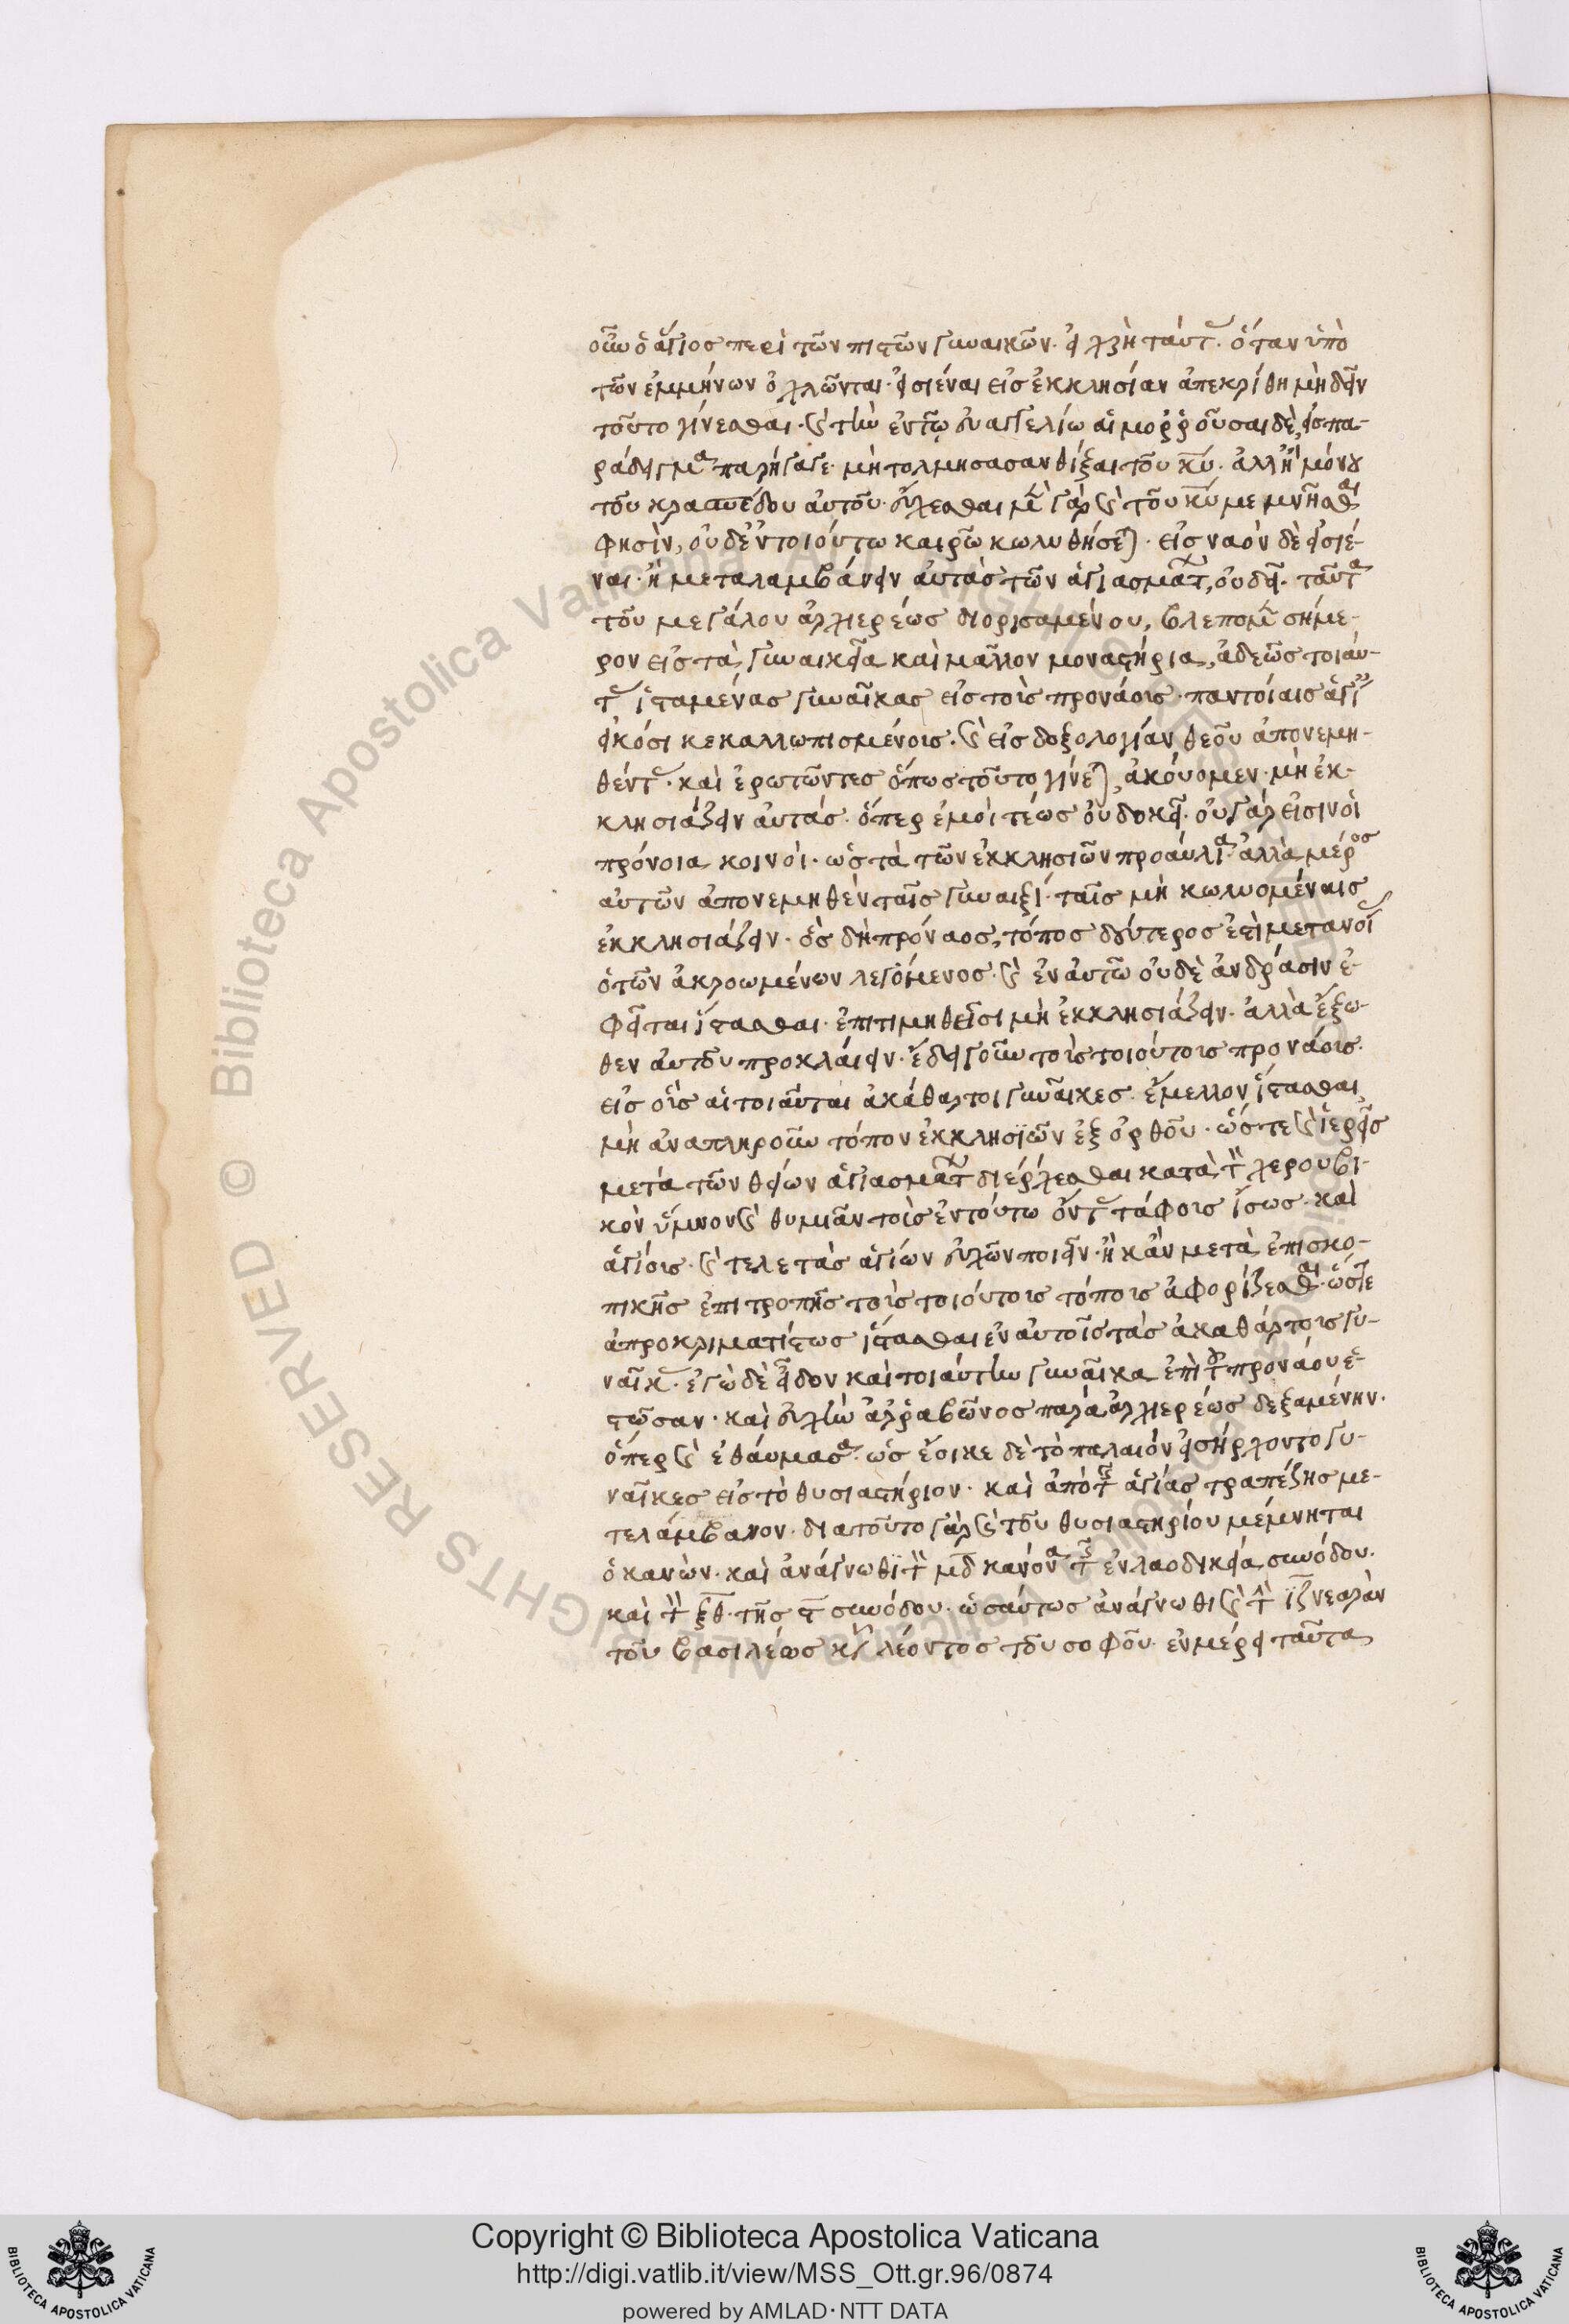 οὖν ὁ ἅγιος περὶ τῶν πιστῶν γυναικῶν. εἰ χρὴ ταύτας. ὅταν ὑπὸ
τῶν ἐμμήνων ὀχλῶνται. εἰσιέναι εἰς ἐκκλησίαν ἀπεκρίθη μὴ δεῖν
τοῦτο γίνεσθαι. καὶ τὴν ἐν τῶ εὐαγγελίω αἱμορροοῦσαι δὲ, εἰς πα-
ράδειγμα παρήγαγε. μὴ τολμησασαν θίξαι τοῦ κυ. ἀλλ' ἢ μόνου
τοῦ κρασπέδου αὐτοῦ. εὔχεσθαι μὲν γὰρ καὶ τοῦ κυ μεμνῆσθαι
φησὶν, οὐδ' ἐν τοιούτω καιρῶ κωλυθήσεται. εἰς ναὸν δὲ εἰσιέ-
ναι. ἢ μεταλαμβάνειν αὐτὰς τῶν ἁγιασμάτων, οὐ δεῖ. ταῦτα
τοῦ μεγάλου ἀρχιερέως διορισαμένου, βλέπομεν σήμε-
ρον εἰς τὰ γυναικεῖα καὶ μᾶλλον μοναστήρια, ἀδεῶς τοιαύ-
τας ἱσταμένας γυναῖκας εἰς τοῖς προνάοις. παντοίαις ἁγίων
εἰκόσι κεκαλλωπισμένοις. καὶ εἰς δοξολογίαν θεοῦ ἀπονεμη-
θέντας. καὶ ἐρωτῶντες ὅπως τοῦτο γίνεται, ἀκούομεν. μὴ ἐκ-
κλησιάζειν αὐτάς. ὅπερ ἐμοὶ τέως οὐ δοκεῖ. οὐ γάρ εἰσιν οἱ
πρόνοια κοινοὶ. ὡς τὰ τῶν ἐκκλησιῶν προαύλια. ἀλλὰ μέρος
αὐτῶν ἀπονεμηθὲν ταῖς γυναιξί. ταῖς μὴ κωλυομέναις
ἐκκλησιάζειν. ὃς δὴ πρόναος, τόπος δεύτερος ἐστὶ μετανοίας
ὁ τῶν ἀκροωμένων λεγόμενος. καὶ ἐν αὐτῶ οὐδὲ ἀνδράσιν ἐ-
φεῖται ἵστασθαι. ἐπιτιμηθεῖσι μὴ ἐκκλησιάζειν. ἀλλὰ ἔξω-
θεν αὐτοῦ προκλαίειν. ἔδει γοῦν τοῖς τοιούτοις προνάοις.
εἰς οἷς αἱ τοιαῦται ἀκάθαρτοι γυναῖκες. ἔμελλον ἵστασθαι,
μὴ ἀναπληροῦν τόπον ἐκκλησϊῶν ἐξ ὀρθοῦ. ὥστε καὶ ἱερεῖς
μετὰ τῶν θείων ἁγιασμάτων διέρχεσθαι κατὰ τὸν χερουβι-
κὸν ὕμνον καὶ θυμιᾶν τοῖς ἐν τούτω οὖντας τάφοις ἴσως. καὶ
ἁγίοις. καὶ τελετὰς ἁγίων εὐχῶν ποιεῖν. ἢ κἂν μετὰ ἐπισκο-
πικῆς ἐπιτροπῆς τοῖς τοιούτοις τόποις ἀφορίζεσθαι. ὥστε
ἀπροκριματίστως ἵστασθαι ἐν αὐτοῖς τὰς ἀκαθάρτοις γυ-
ναῖκας. ἐγὼ δὲ εἶδον καὶ τοιαύτην γυναῖκα ἐπὶ τοῦ προνάου ἑ-
στῶσαν. καὶ εὐχὴν ἀρραβῶνος παρὰ ἀρχιερέως δεξαμένην.
ὅπερ καὶ ἐθαύμασα. ὡς ἔοικε δὲ τὸ παλαιόν εἰσήρχοντο γυ-
ναῖκες εἰς τὸ θυσιαστήριον. καὶ ἀπὸ τῆς ἁγίας τραπέζης με-
τελάμβανον. διατοῦτο γὰρ καὶ τοῦ θυσιαστηρίου μέμνηται
ὁ κανών. καὶ ἀνάγνωθι τὸν μδ κανόνα τῆς ἐν λαοδικεία συνόδου.
καὶ τὸν ξθ. τῆς ϛ συνόδου. ὡσαύτως ἀνάγνωθι καὶ τὴν ιζ νεαρὰν
τοῦ βασιλέως κυ λέοντος τοῦ σοφοῦ. ἐν μέρει ταῦτα
Copyright © Biblioteca Apostolica Vaticana
http://digi.vatlib.it/view/MSS_Ott.gr.96/0874
powered by AMLAD·NTT DATA
BIBLIOTECA APOSTOLICA VATICANA
BIBLIOTECA APOSTOLICA VATICANA
Biblioteca Apostolica Vaticana ALL RIGHTS RESERVED ©